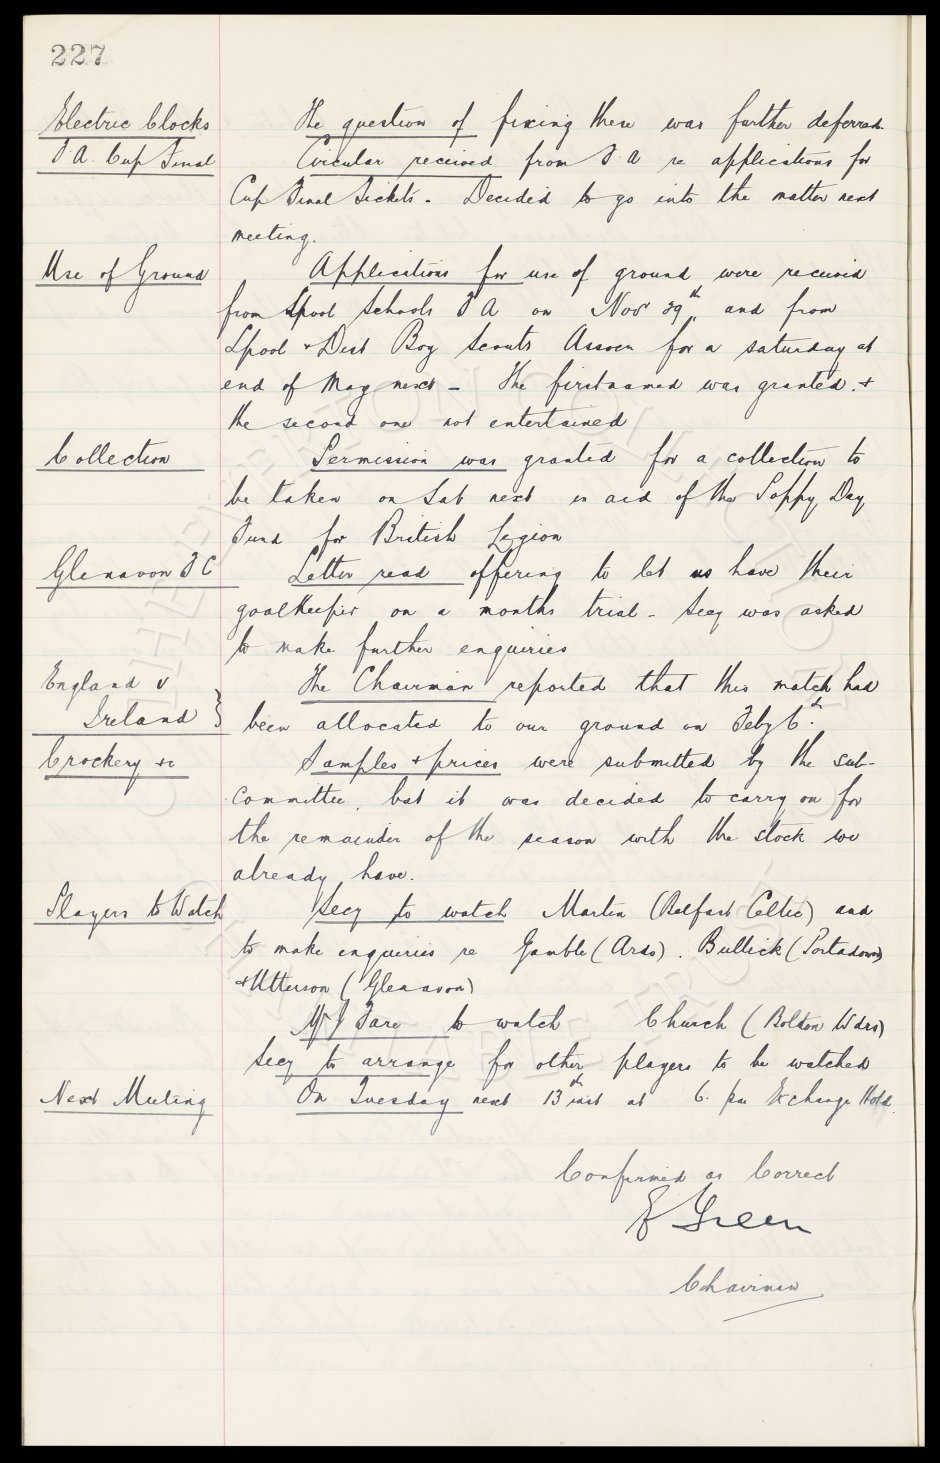 227
Electric Clocks The question of fixing these was further deferred.
F.A. Cup Final Circular received from F A re applications for
Cup Final Tickets. Decided to go into the matter next
meeting.
Use of Ground Applications for use of ground were received
from Lpool Schools F A on Nov 29th, and from
Lpool & Dist Boy Scouts Assocn for a saturday at
end of May next – The firstnamed was granted. &
the second one not entertained
Collection Permission was granted for a collection to
be taken on Sat next in aid of the Poppy Day
Fund for British Legion
Glenavon F C Letter read offering to let us have their
goalkeeper on a months trial – Secy was asked
to make further enquiries
England v The Chairman reported that this match had
Ireland } been allocated to our ground on Feby 6th.
Crockery &c Samples & prices were submitted by the sub-
committee, but it was decided to carry on for
the remainder of the season with the stock we
already have.
Players to Watch Secy to watch Martin (Belfast Celtic) and
to make enquiries re Gamble (Ards). Bullick (Portadown)
& Utterson (Glenavon)
Mr J Fare to watch Church (Bolton Wdrs)
Secy to arrange for other players to be watched
Next Meeting On Tuesday next 13th inst at 6. pm Exchange Hotel.
Confirmed as Correct
E Green
Chairman